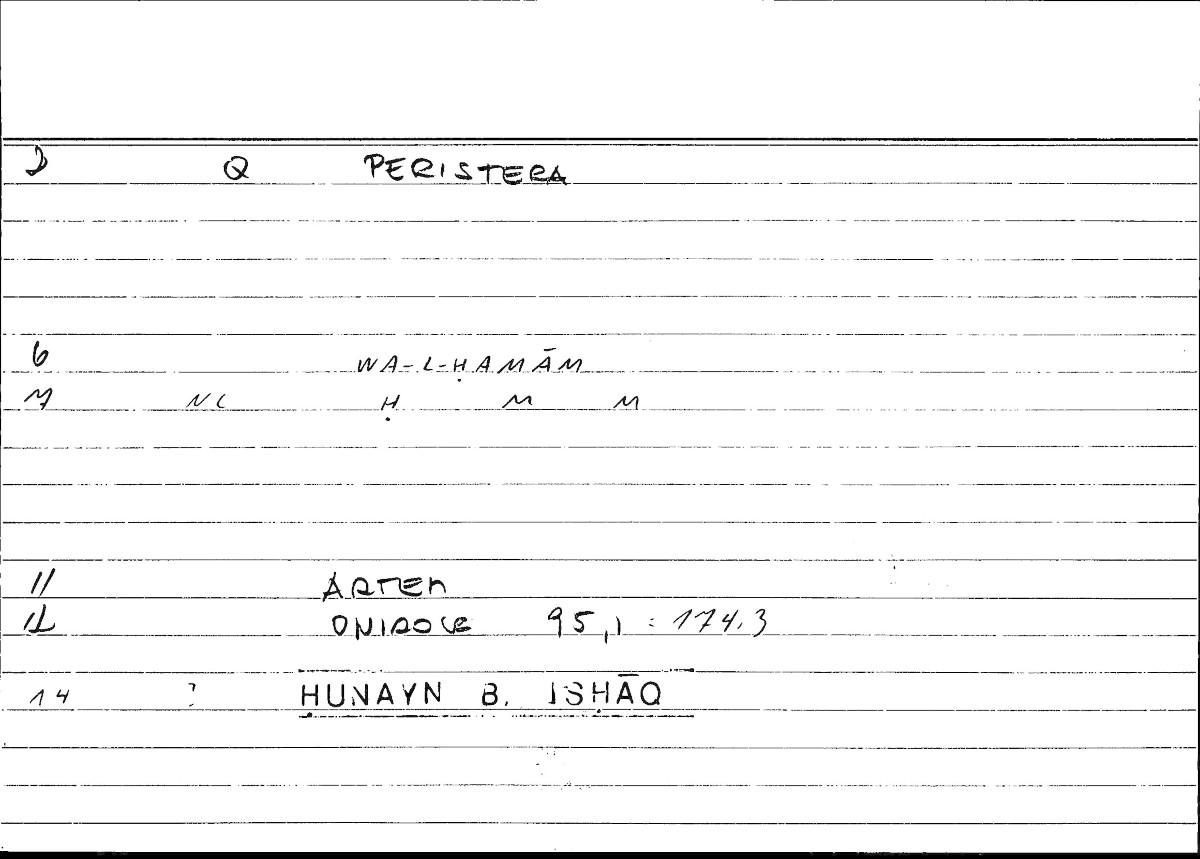 2 Q PERISTERA
6 WA-L-ḤAMĀM
7 NC Ḥ M M
11 ARTEM
12 ONIROCR 95,1 : 174.3
14 ? ḤUNAYN B. ISḤĀQ